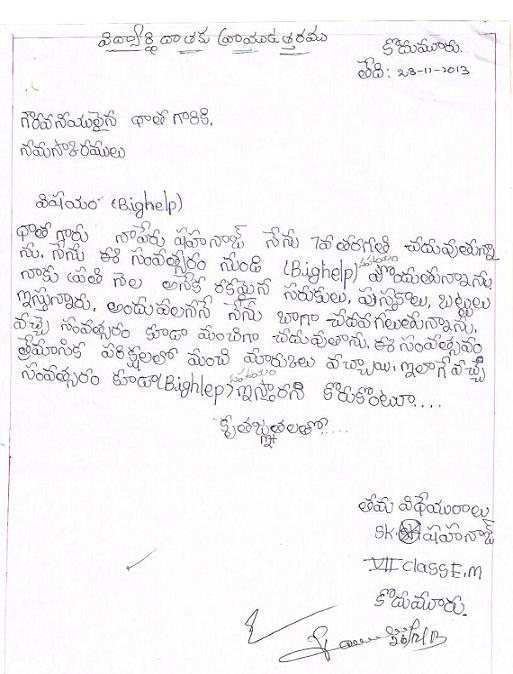 విద్యార్థి దాతకు వ్రాయుఉత్తరము
కొడుమూరు.
తేది: 23-11-2013
గౌరవనీయులైన దాత గారికి,
నమస్కారములు
విషయం (Bighelp)
దాతగారు నాపేరు షహనాజ్ నేను 7వ తరగతి చదువుతున్నా
ను. నేను ఈ సంవత్సరం నుండి (Bighelp) సహాయం పొందుతున్నాను.
నాకు ప్రతి నెల అనేక రకమైన సరుకులు, పుస్తకాలు, బట్టలు
ఇస్తున్నారు. అందువలననే నేను బాగా చదవగలుతున్నాను.
వచ్చే సంవత్సరం కూడా మంచిగా చదువుతాను. ఈ సంవత్సరం
త్రైమాసిక పరిక్షలలో మంచి మార్కులు వచ్చాయి. ఇలాగే వచ్చే
సంవత్సరం కూడా (Bighlep) సహాయం ఇస్తారని కోరుకొంటూ....
కృతజ్ఞతలతో....
తమ విధేయురాలు
SK. షహనాజ్
VII class E.m
కొడుమూరు.